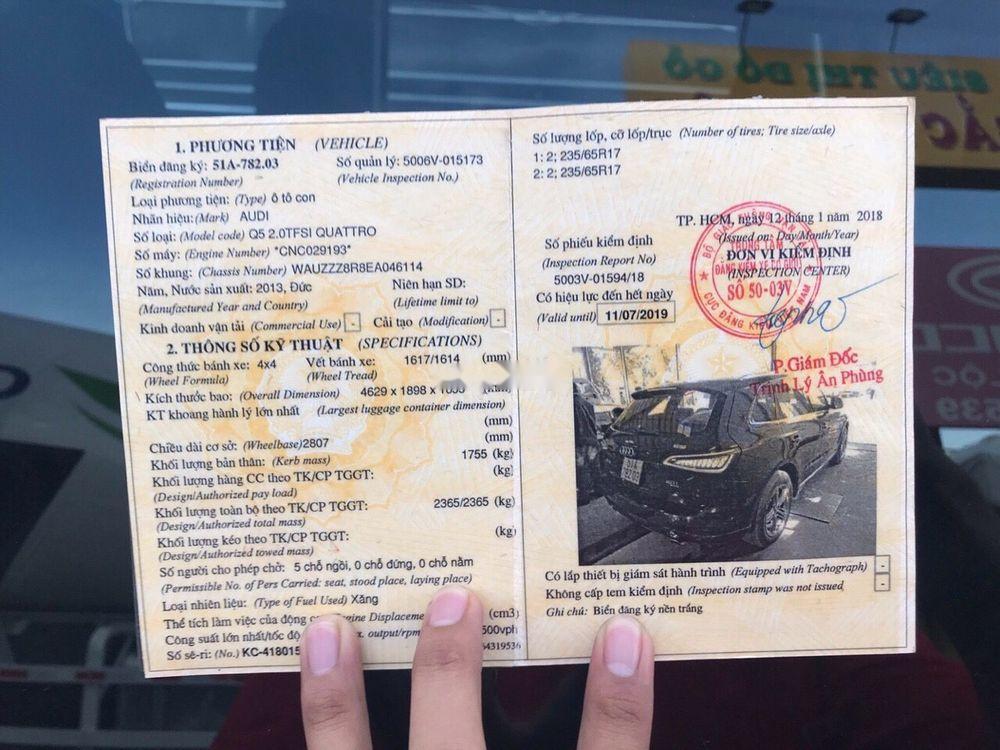 1. PHƯƠNG TIỆN (VEHICLE)
Biển đăng ký: 51A-782.03 Số quản lý: 5006V-015173
(Registration Number) (Vehicle Inspection No.)
Loại phương tiện: (Type) ô tô con
Nhãn hiệu: (Mark) AUDI
Số loại: (Model code) Q5 2.0TFSI QUATTRO
Số máy: (Engine Number) *CNC029193*
Số khung: (Chassis Number) WAUZZZ8R8EA046114
Năm, Nước sản xuất: 2013, Đức Niên hạn SD:
(Manufactured Year and Country) (Lifetime limit to)
Kinh doanh vận tải (Commercial Use) - Cải tạo (Modification) -
2. THÔNG SỐ KỸ THUẬT (SPECIFICATIONS)
Công thức bánh xe: 4x4 Vết bánh xe: 1617/1614 (mm)
(Wheel Formula) (Wheel Tread)
Kích thước bao: (Overall Dimension) 4629 x 1898 x (mm)
KT khoang hành lý lớn nhất (Largest luggage container dimension)
(mm)
Chiều dài cơ sở: (Wheelbase) 2807 (mm)
Khối lượng bản thân: (Kerb mass) 1755 (kg)
Khối lượng hàng CC theo TK/CP TGGT: (kg)
(Design/Authorized pay load)
Khối lượng toàn bộ theo TK/CP TGGT: 2365/2365 (kg)
(Design/Authorized total mass)
Khối lượng kéo theo TK/CP TGGT: (kg)
(Design/Authorized towed mass)
Số người cho phép chở: 5 chỗ ngồi, 0 chỗ đứng, 0 chỗ nằm
(Permissible No. of Pers Carried: seat, stood place, laying place)
Loại nhiên liệu: (Type of Fuel Used) Xăng
Thể tích làm việc của động (cm3)
Công suất lớn nhất/tốc độ output/rpm 500vph
Số sê-ri: (No.) KC-418015 64319536
Số lượng lốp, cỡ lốp/trục (Number of tires; Tire size/axle)
1: 2; 235/65R17
2: 2; 235/65R17
TP. HCM, ngày 12 tháng 1 năm 2018
(Issued on: Day/Month/Year)
Số phiếu kiểm định
(Inspection Report No)
5003V-01594/18
ĐƠN VỊ KIỂM ĐỊNH
(INSPECTION CENTER)
TRUNG TÂM
ĐĂNG KIỂM XE CƠ GIỚI
SỐ 50-03V
CỤC ĐĂNG KIỂM VIỆT NAM
Có hiệu lực đến hết ngày
(Valid until) 11/07/2019
P.Giám Đốc
Trịnh Lý Ân Phùng
Có lắp thiết bị giám sát hành trình (Equipped with Tachograph) -
Không cấp tem kiểm định (Inspection stamp was not issued) -
Ghi chú: Biển đăng ký nền trắng
SIÊU THỊ ĐỒ GỖ